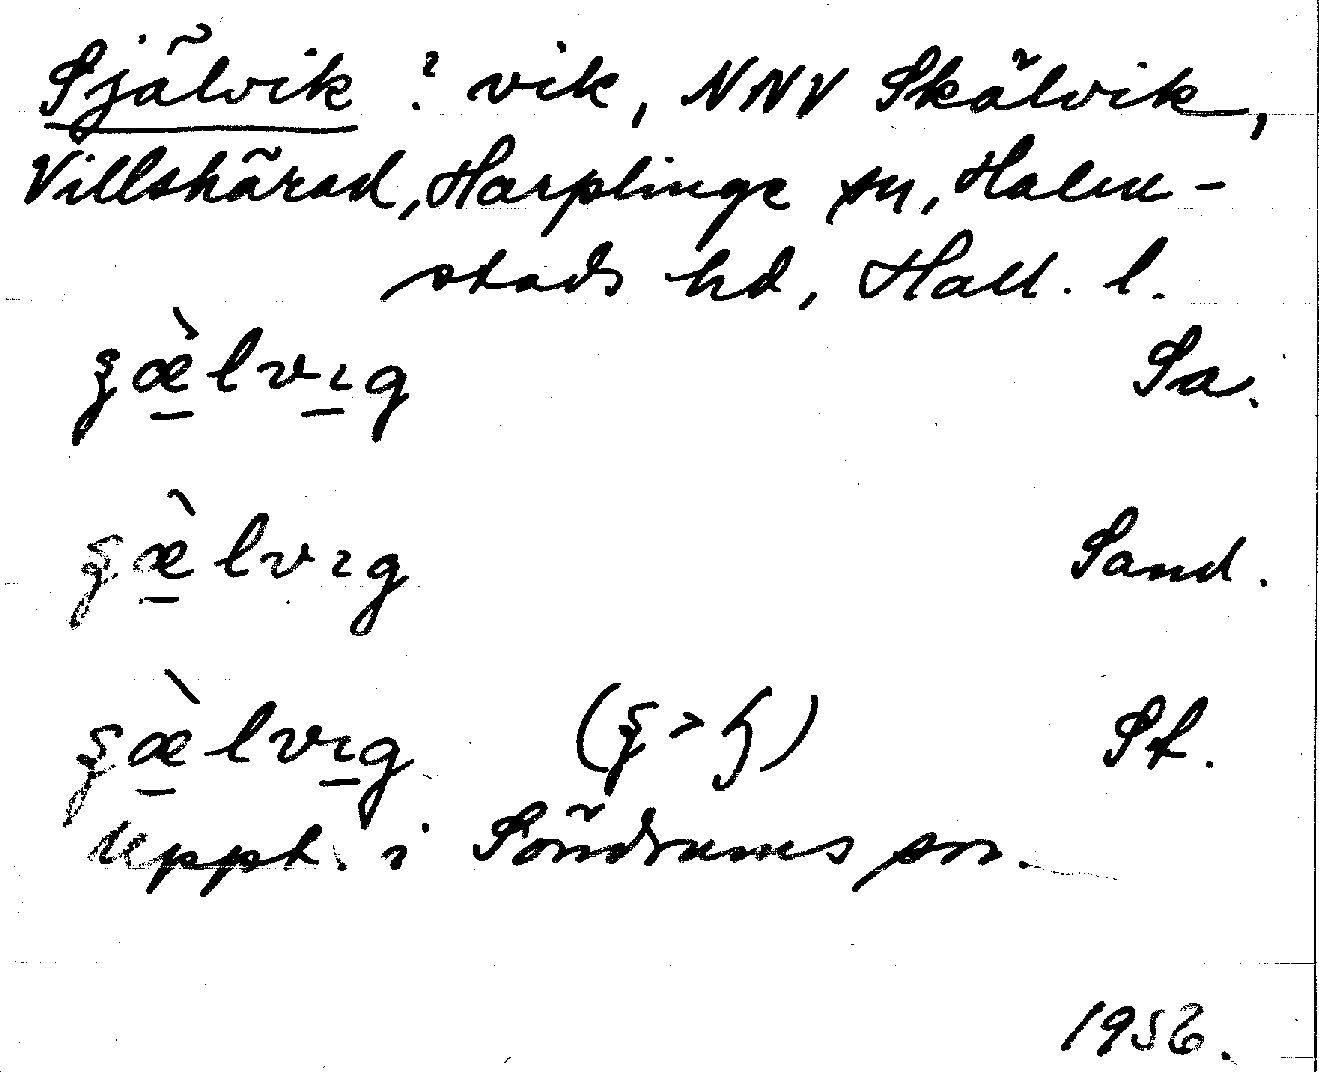 Självik ? vik, NNV Skälvik,
Villshärad, Harplinge sn, Halm-
stads hd, Hall. l.
ʂæ̀lvıg Sa.
ʂæ̀lvıg Sand.
ʂæ̀lvıg (ʂ > ɧ) St.
Uppt. i Söndrums sn.
1956.